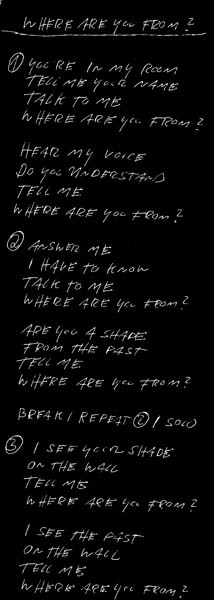 WHERE ARE YOU FROM?
① YOU'RE IN MY ROOM
TELL ME YOUR NAME
TALK TO ME
WHERE ARE YOU FROM?
HEAR MY VOICE
DO YOU UNDERSTAND
TELL ME
WHERE ARE YOU FROM?
② ANSWER ME
I HAVE TO KNOW
TALK TO ME
WHERE ARE YOU FROM?
ARE YOU A SHADE
FROM THE PAST
TELL ME
WHERE ARE YOU FROM?
BREAK / REPEAT ② / SOLO
③ I SEE YOUR SHADE
ON THE WALL
TELL ME
WHERE ARE YOU FROM?
I SEE THE PAST
ON THE WALL
TELL ME
WHERE ARE YOU FROM?